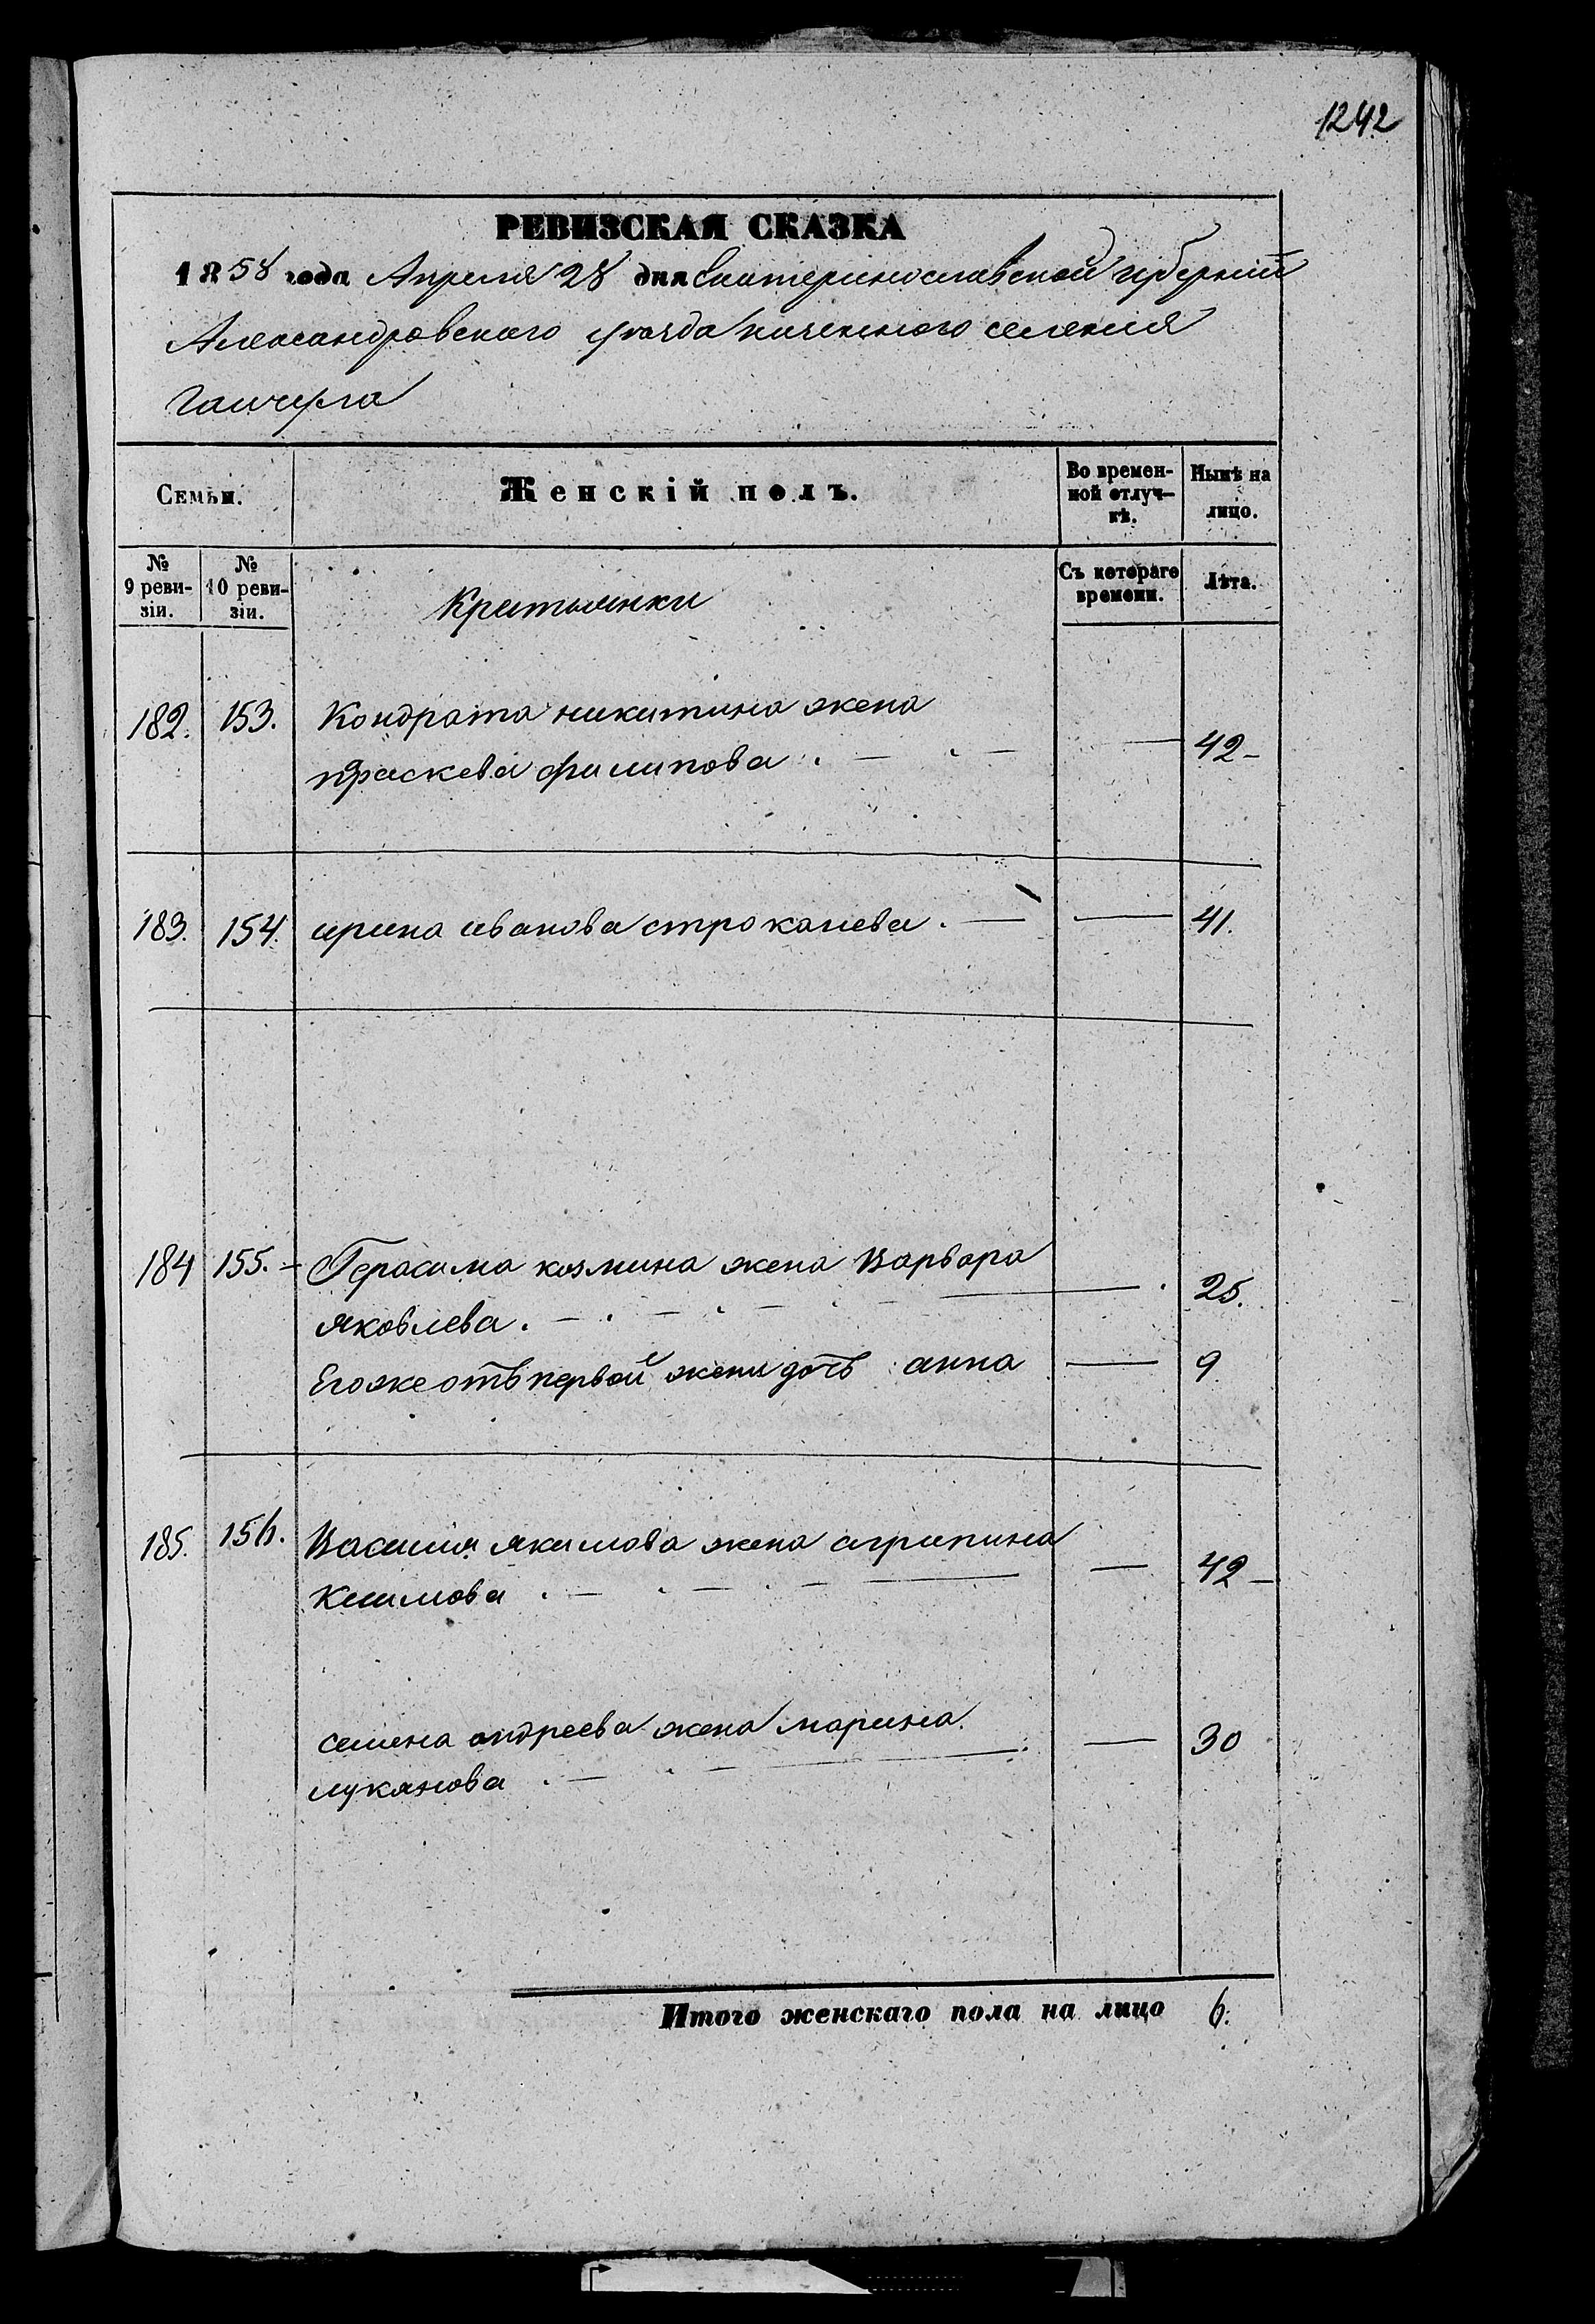 1242
РЕВИЗСКАЯ СКАЗКА
1858 года Апреля 28 дня Екатеринославской губерний
Александровского уезда казенного селения
Гайчула
Семьи.
Женскій полъ.
Во времен-
ной отлуч-
кѣ.
Нынѣ на
лицо.
№
9 реви-
зіи.
№
10 реви-
зіи.
Съ котораго
времени.
Лѣта.
Кристьянки
182. 153. Кондрата никитина жена
праскева филипова . — . — — 42-
183. 154. ирина иванова строкачева . — — 41.
184 155. - Герасима козмина жена Варвара
яковлева . — . — . — . — — . 25.
Егожеотъ первой жены дочь анна — 9
185. 156. Василия якимова жена агрипина
Климова . — . — . — — — 42 -
семена андреева жена марина.
лукянова . — . — — . — 30
Итого женскаго пола на лицо 6.